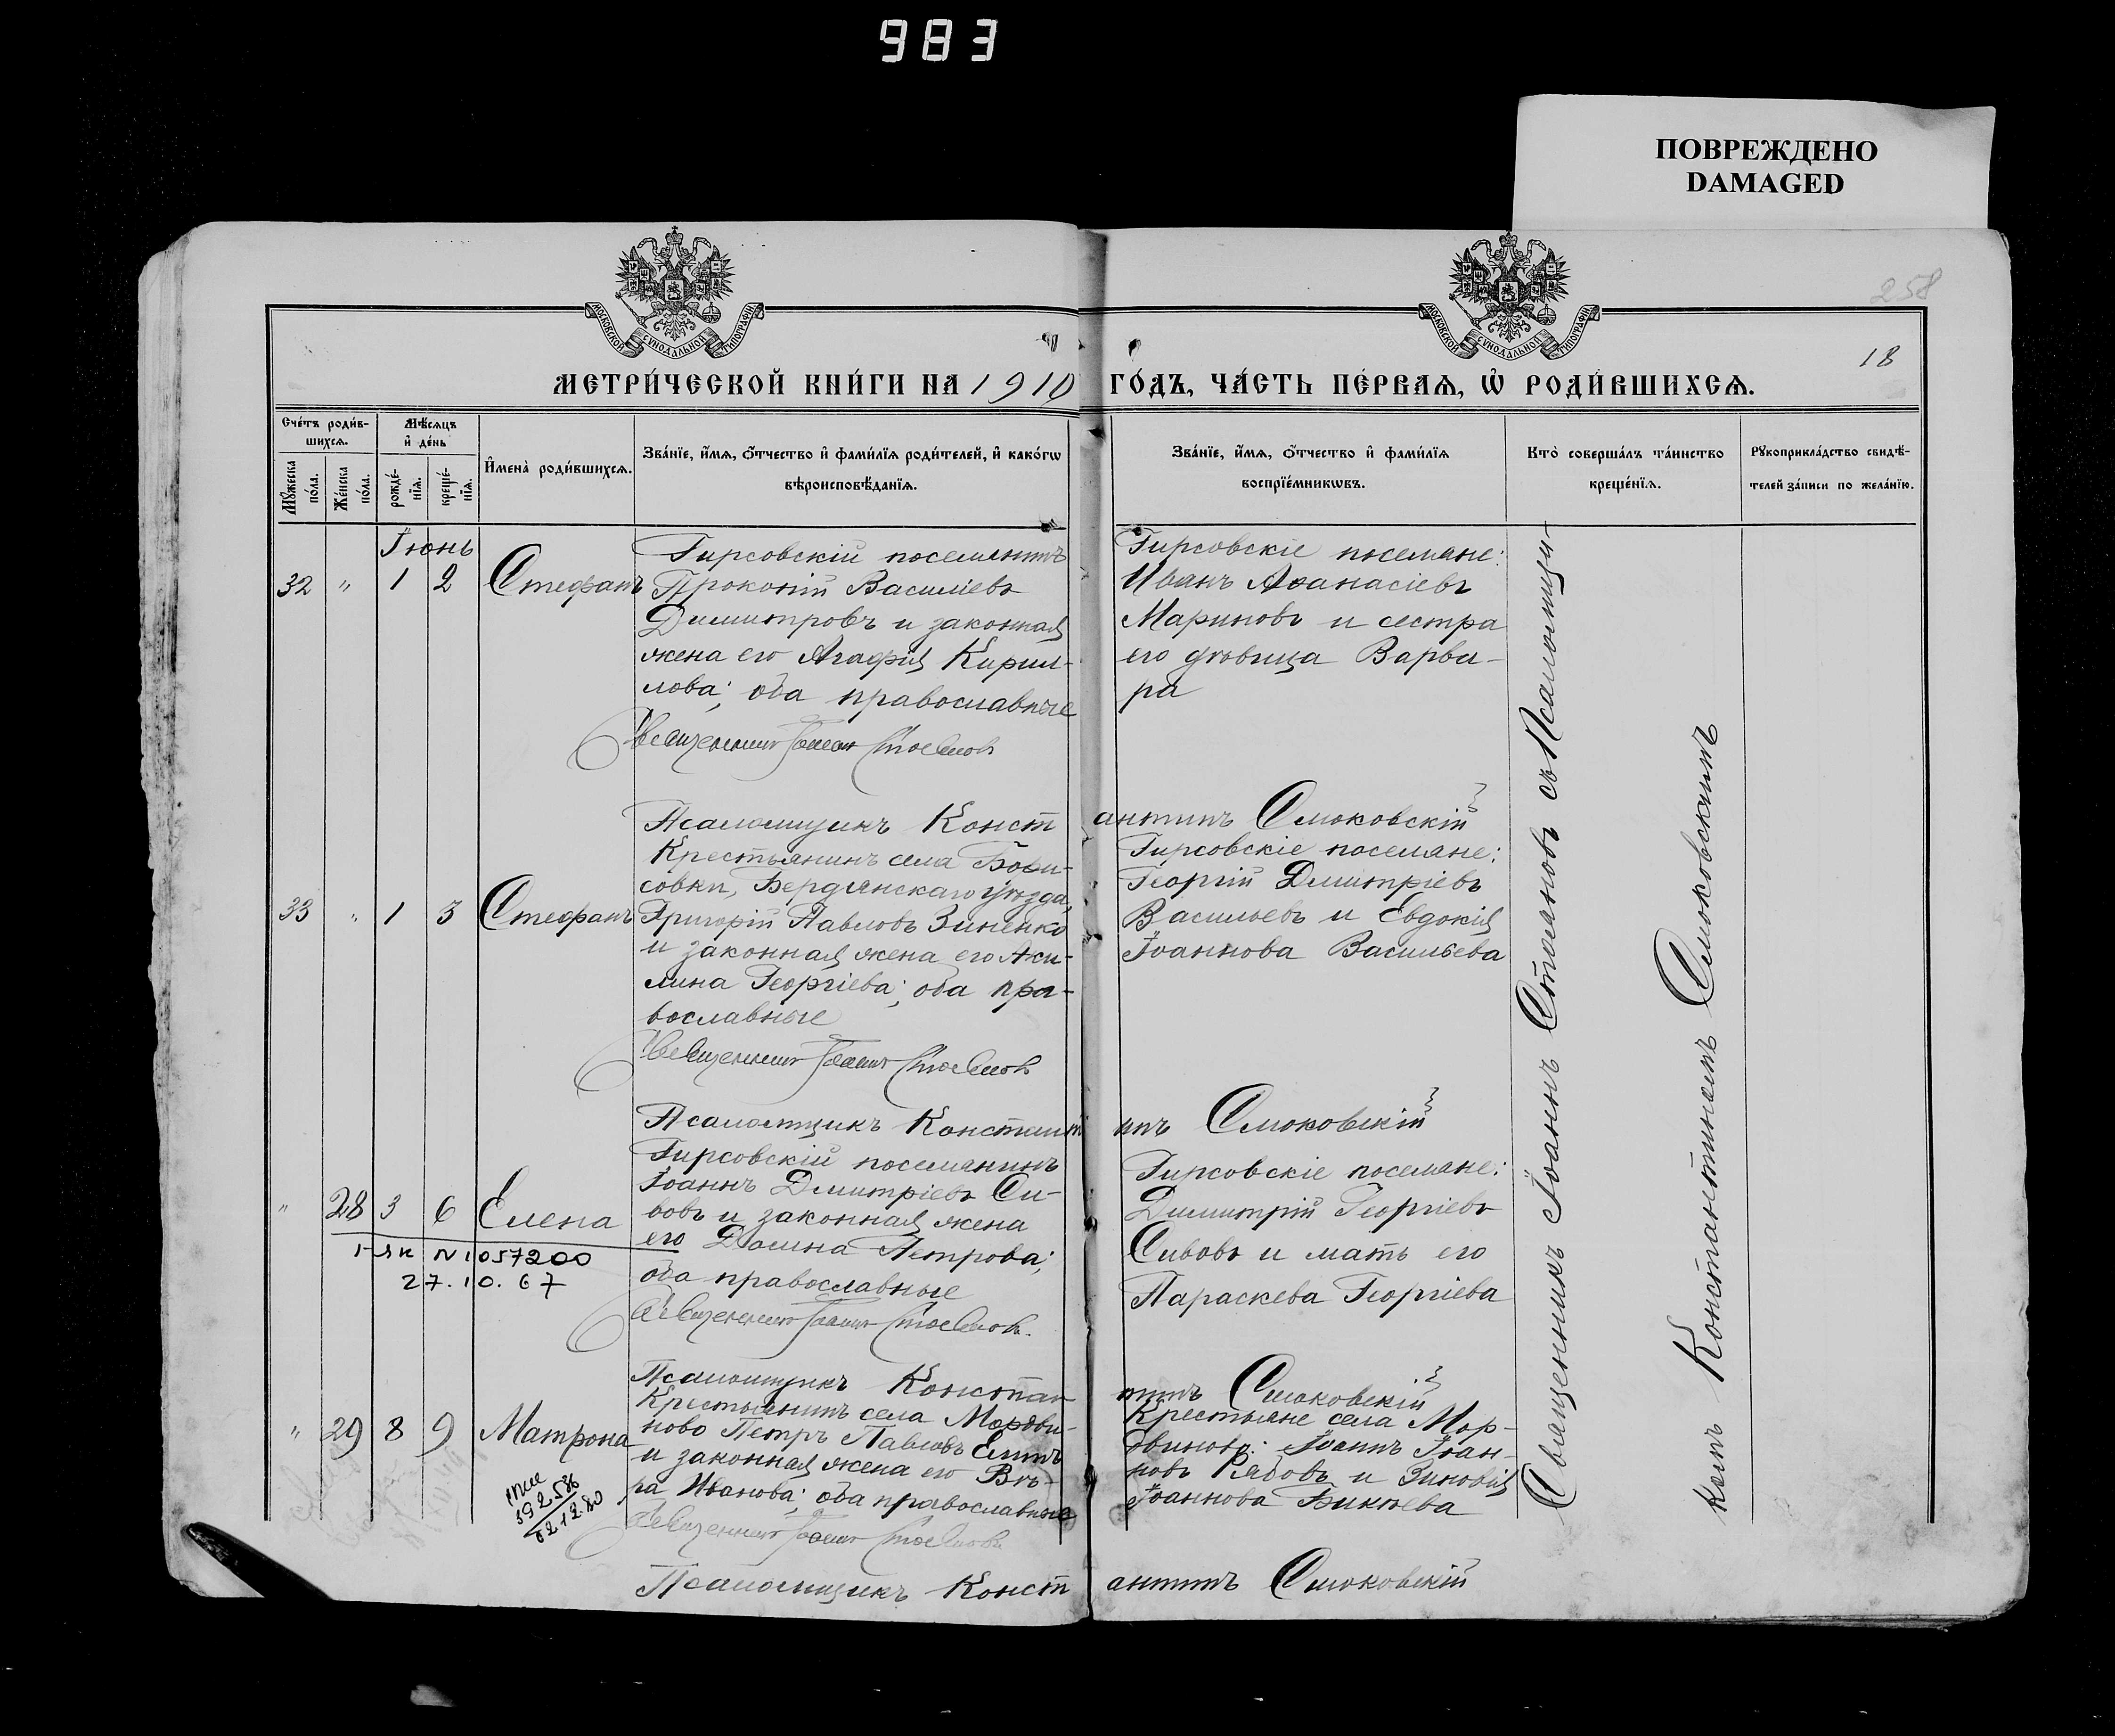 983
ПОВРЕЖДЕНО
DAMAGED
258
18
МОСКОВСКОЙ СѴНОДАЛЬНОЙ ТИПОГРАФІИ
МОСКОВСКОЙ СѴНОДАЛЬНОЙ ТИПОГРАФІИ
МЕТРИ́ЧЕСКОЙ КНИ́ГИ НА 1910 ГО́ДЪ, ЧА́СТЬ ПЕ́РВАѦ, Ѽ РОДИ́ВШИХСѦ.
Сче́тъ роди́в-
шихсѧ.
Мꙋ́жеска
по́ла.
Же́нска
по́ла.
Мѣ́сѧцъ
и҆ де́нь
рожде́-
нїѧ.
креще́-
нїѧ.
И҆мена̀ роди́вшихсѧ.
Зва́нїе, и҆́мѧ, ѻ҆́тчество и҆ фами́лїѧ роди́телей, и҆ како́гѡ
вѣроисповѣ́данїѧ.
Зва́нїе, и҆́мѧ, ѻ҆́тчество и҆ фами́лїѧ
воспрїе́мникѡвъ.
Кто̀ соверша́лъ та́инство
креще́нїѧ.
Рꙋкоприкла́дство свидѣ́-
телей за́писи по жела́нїю.
Іюнь
32 " 1 2 Стефанъ
Гирсовскій поселянинъ
Прокопій Василіевъ
Димитровъ и законная
жена его Агафія Кирил-
лова; оба православные
Священникъ Іоаннъ Стоиловъ
Гирсовскіе поселяне:
Иванъ Аѳанасіевъ
Мариновъ и сестра
его дѣвица Варва-
ра
Псаломщикъ Константинъ Смоковскій
33 " 1 3 Стефанъ
Крестьянинъ села Бори-
совки, Бердянскаго уѣзда,
Григорій Павловъ Зиненко
и законная жена его Аки-
лина Георгіева; оба пра-
вославные
Священникъ Іоаннъ Стоиловъ
Гирсовскіе поселяне:
Георгій Дмитріевъ
Васильевъ и Евдокія
Іоаннова Васильева
Псаломщикъ Константинъ Смоковскій
" 28 3 6 Елена
N 1057200
27.10.67
Гирсовскій поселянинъ
Іоаннъ Дмитріевъ Си-
вовъ и законная жена
его Домна Петрова;
оба православные
Священникъ Іоаннъ Стоиловъ.
Гирсовскіе поселяне:
Димитрій Георгіевъ
Сивовъ и мать его
Параскева Георгіева
Псаломщикъ Константинъ Смоковскій
" 29 8 9 Матрона
392586
021280
Крестьянинъ села Мордви-
ново Петръ Павловъ
и законная жена его Вѣ-
ра Иванова; оба православные
Священникъ Іоаннъ Стоиловъ
Крестьяне села Мор-
двиново: Іоаннъ Іоан-
новъ Рябовъ и Зиновія
Іоаннова
Псаломщикъ Константинъ Смоковскій
Священникъ Іоаннъ Стоиловъ съ Псаломщи-
комъ Константиномъ Смоковскимъ